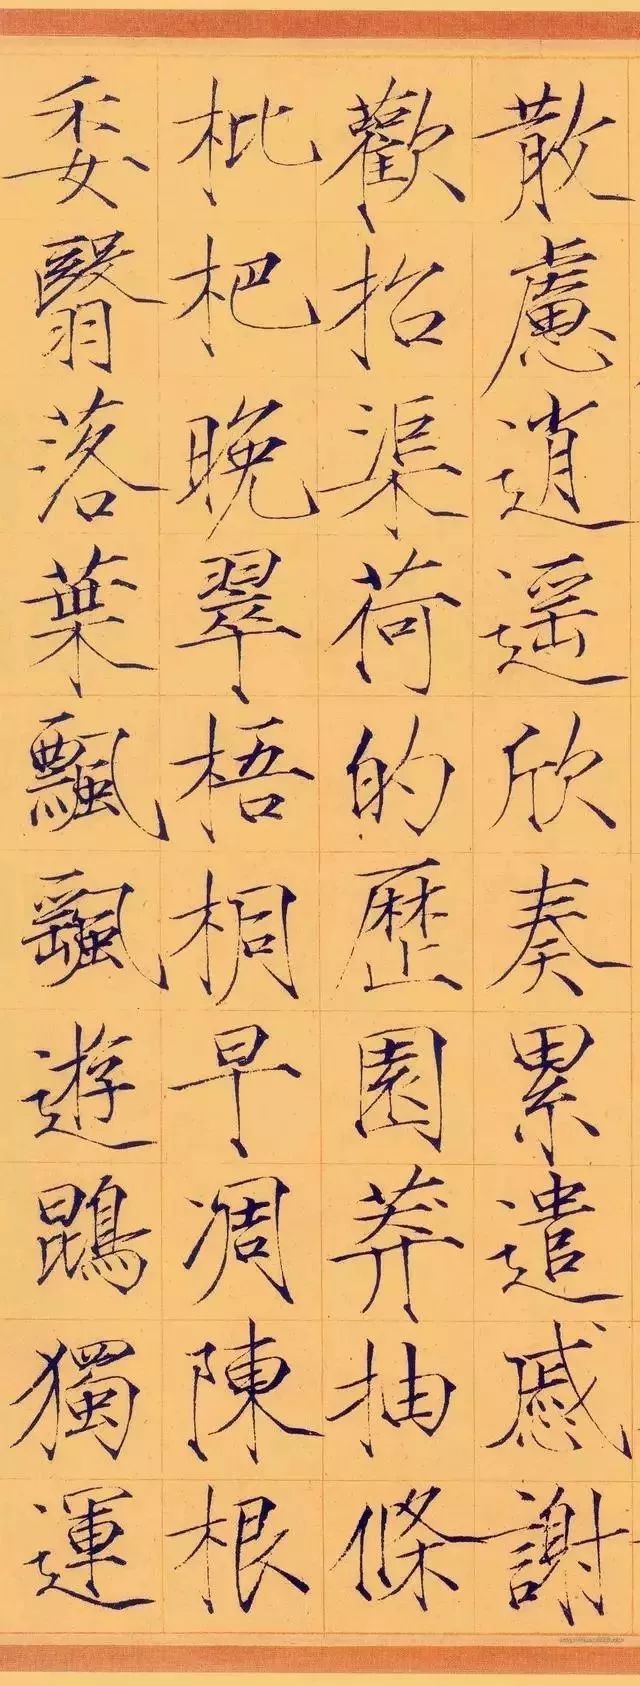 散慮逍遥欣奏累遣慼謝
歡招渠荷的歷園莽抽條
枇杷晚翠梧桐早凋陳根
委翳落葉飄飖遊鵾獨運